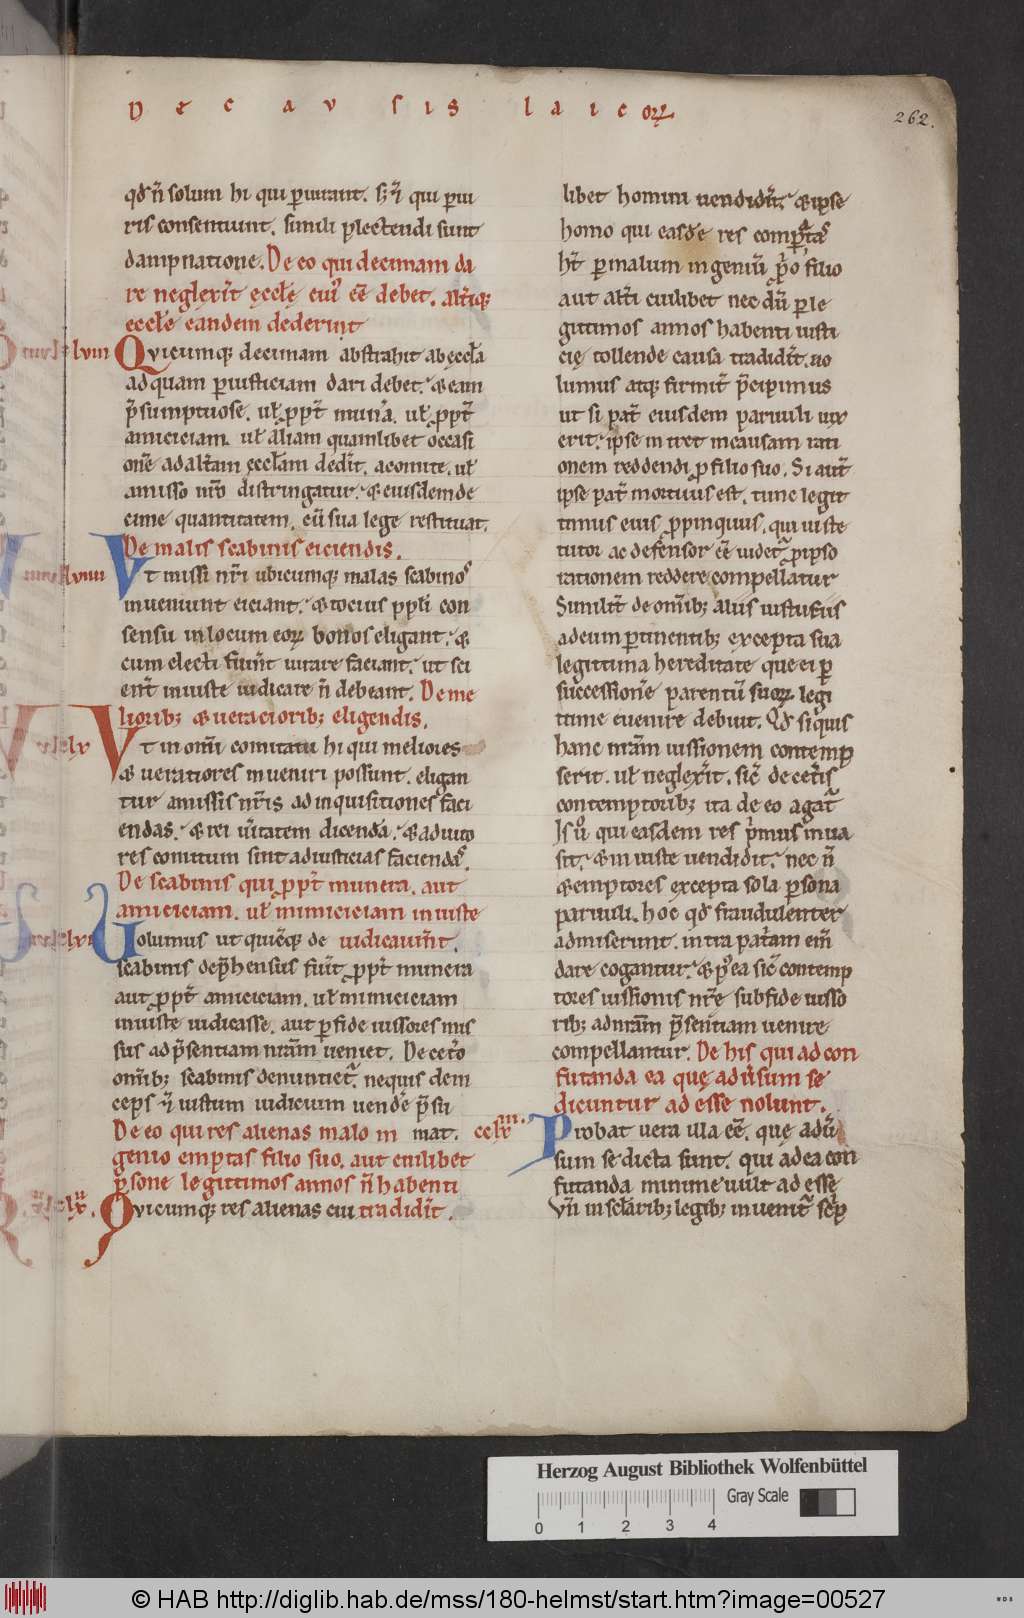 De cavsis laicoꝝ
262.
qđ ñ solum hi qui ꝑiurant. sꝫ ⁊ qui ꝑiu
riis consentiunt. simili plectendi sunt
dampnatione. De eo qui decimam da
re neglexit̄ ęccl̄ę cui᾽ eē debet. alt̄iq;
eccl̄e eandem dederint
Qvicumq; decimam abstrahit ab ęccl̄a
ad quam ꝑ iusticiam dari debet. & eam
p̄sumptuose. ul̄ ꝓpt̄ munᷓa. ul̄ ꝓpt̄
amiciciam. ul̄ aliam quamlibet occasi
onē ad alt̄am ęccl̄am dedit̄. a comite. ul̄
a misso nr̄o distringatur. & eiusdem de
cime quantitatem. cū sua lege restituat.
De malis scabinis eiciendis.
Vt missi nr̄i ubicumq; malas scabinos
inueniunt eiciant. & tocius ppl̄i con
sensu in locum eoꝝ bonos eligant. &
cum electi fuer̄t iurare faciant. ut sci
ent̄ iniuste iudicare ñ debeant. De me
liorib; & ueraciorib; eligendis.
Vt in om̄i comitatu hi qui meliores
& ueratiores inueniri possunt. eligan
tur a missis nr̄is ad inquisitiones faci
endas. & rei ūitatem dicenda. & adiuto
res comitum sint ad iusticias faciendas.
De scabinis qui ꝓpt̄ munera. aut
amiciciam. ul̄ inimiciciam iniuste
Uolumus ut quicq; de iudicauer̄t.
scabinis dep̄hensus fuit̄ ꝓpt̄ munera
aut ꝓpt̄ amiciciam. ul̄ inimiciciam
iniuste iudicasse. aut ꝑ fideiussores mis
sus ad p̄sentiam nr̄am ueniet. De cet̄o
om̄ib; scabinis denuntiet᷑. ne quis dein
ceps ⁊ iustum iudicium uende p̄su
De eo qui res alienas malo in mat.
genio emptas filio suo. aut cuilibet
ꝑsone legittimos annos ñ habenti
Qvicumq; res alienas cui tradidit̄.
libet homini uendidit̄. & ipse
homo qui easdē res comparatas
ht̄ ꝑ malum ingeniū ꝓpo filio
aut alt̄i cuilibet necdū ꝑ le
gittimos annos habenti iusti
cię tollende causa tradidit̄. uo
lumus atq; firmit̄ p̄cipimus
ut si pat̄ eiusdem paruuli uix
erit. ipse intret in causam rati
onem reddendi ꝓ filio suo. Si aut̄
ipse pat̄ mortuus est. tunc legit
timus eius ꝓpinquus. qui iuste
tutor ac defensor eē uidet᷑ ꝓ ipso
rationem reddere compellatur
Similit̄ de om̄ib; aliis iustitiis
ad eum ꝑtinentib; excepta sua
legittima hereditate que ei ꝑ
successionē parentū suoꝝ legi
time euenire debuit. Qđ si quis
hanc nr̄am iussionem contemp
serit. ul̄ neglexit̄. sic̄ de cet̄is
contemptorib; ita de eo agat᷑
Is u̇ qui easdem res p̄mus inua
sit. & iniuste uendidit. nec ñ
& emptores excepta sola ꝑsona
paruuli. hoc qđ fraudulenter
admiserunt. intra pat̄am em̄
dare cogantur. & p᾽ ea sic̄ contemp
tores iussionis nr̄ę sub fideiusso
rib; ad nr̄am p̄sentiam uenire
compellantur. De his qui ad con
futanda ea quę aduersum se
dicuntur adesse nolunt.
cclxiii.
Probat uera illa eē. quę adū
sum se dicta sunt. qui ad ea con
futanda minime uult adesse
Vn̄ in scl̄arib; legib; inuenit᷑ scp̄
Herzog August Bibliothek Wolfenbüttel
Gray Scale
0 1 2 3 4
© HAB http://diglib.hab.de/mss/180-helmst/start.htm?image=00527